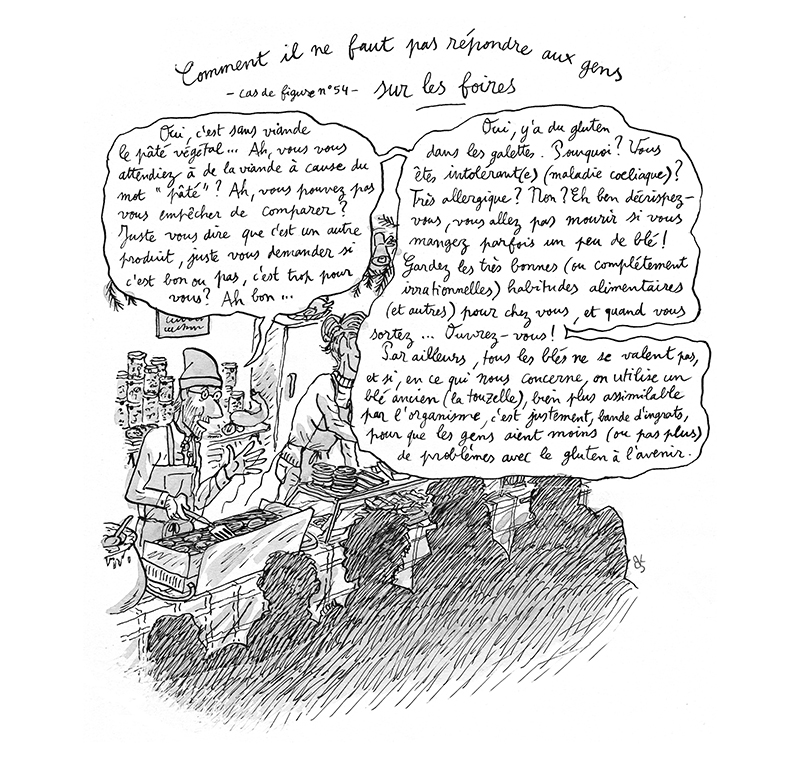 Comment il ne faut pas répondre aux gens
- cas de figure n°54 - sur les foires
Oui, c'est sans viande
le pâté végétal... Ah, vous vous
attendiez à de la viande à cause du
mot "pâté"? Ah, vous pouvez pas
vous empêcher de comparer?
Juste vous dire que c'est un autre
produit, juste vous demander si
c'est bon ou pas, c'est trop pour
vous? Ah bon...
Oui, y'a du gluten
dans les galettes. Pourquoi? Vous
êtes intolérant(e) (maladie coeliaque)?
Très allergique? Non? Eh ben décrispez-
vous, vous allez pas mourir si vous
mangez parfois un peu de blé!
Gardez les très bonnes (ou complétement
irrationnelles) habitudes alimentaires
(et autres) pour chez vous, et quand vous
sortez... Ouvrez-vous!
Par ailleurs, tous les blés ne se valent pas,
et si, en ce qui nous concerne, on utilise un
blé ancien (la touzelle), bien plus assimilable
par l'organisme, c'est justement, bande d'ingrats,
pour que les gens aient moins (ou pas plus)
de problèmes avec le gluten à l'avenir.